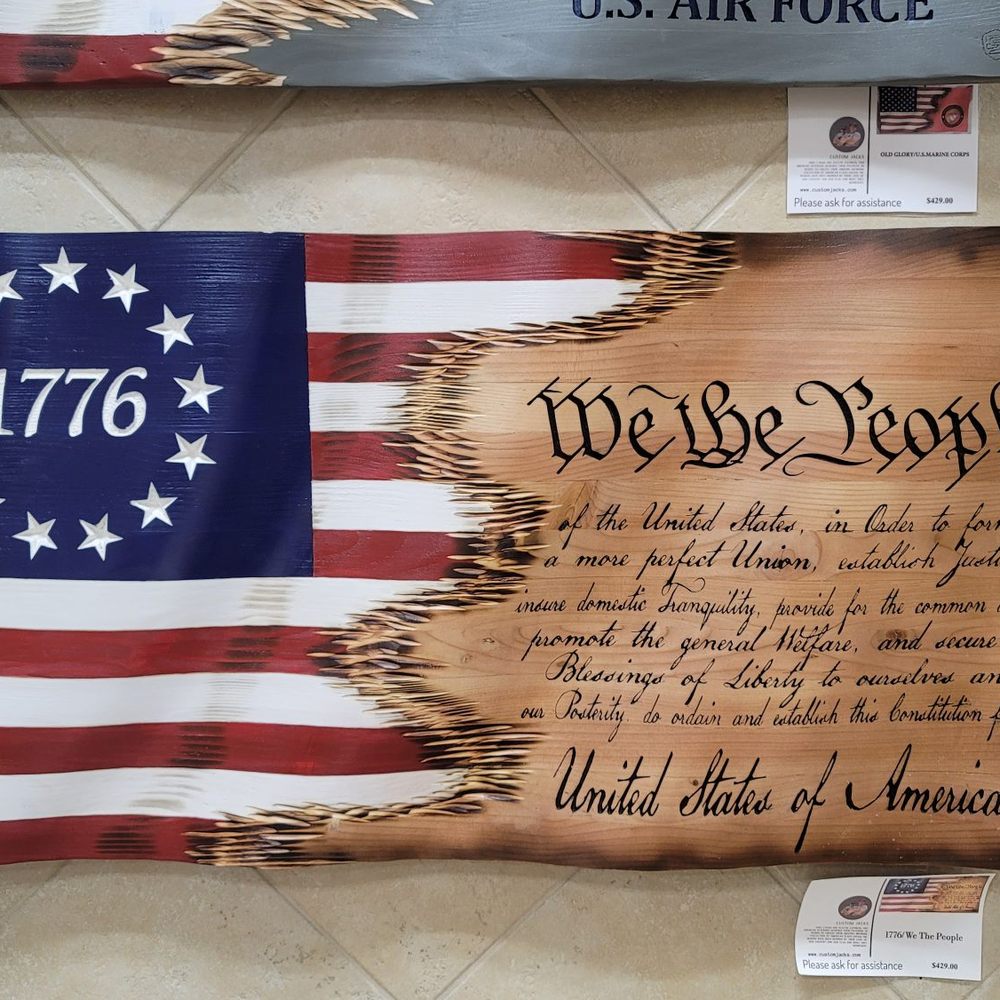 U.S. AIR FORCE
CUSTOM JACKS
OLD GLORY/U.S.MARINE CORPS
www.customjacks.com
Please ask for assistance
$429.00
1776
We the Peopl
of the United States, in Order to form
a more perfect Union, establish Justi
insure domestic Tranquility, provide for the common
promote the general Welfare, and secure
Blessings of Liberty to ourselves an
our Posterity, do ordain and establish this Constitution f
United States of America
CUSTOM JACKS
1776/We The People
www.customjacks.com
Please ask for assistance
$429.00